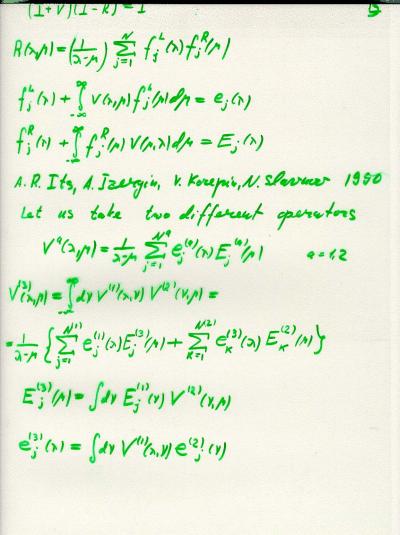 (I+V)(I-R) = I
R(λ,μ) = (1/(λ-μ)) ∑_{j=1}^{N} f_j^L(λ) f_j^R(μ)
f_j^L(λ) + ∫_{-∞}^{∞} V(λ,μ) f_j^L(μ) dμ = e_j(λ)
f_j^R(λ) + ∫_{-∞}^{∞} f_j^R(μ) V(μ,λ) dμ = E_j(λ)
A.R. Its, A. Izergin, V. Korepin, N. Slavnov 1990
Let us take two different operators
V^a(λ,μ) = 1/(λ-μ) ∑_{j=1}^{N^a} e_j^{(a)}(λ) E_j^{(a)}(μ) a=1,2
V^{(3)}(λ,μ) = ∫_{-∞}^{∞} dν V^{(1)}(λ,ν) V^{(2)}(ν,μ) =
= 1/(λ-μ) { ∑_{j=1}^{N^{(1)}} e_j^{(1)}(λ) E_j^{(3)}(μ) + ∑_{k=1}^{N^{(2)}} e_k^{(3)}(λ) E_k^{(2)}(μ) }
E_j^{(3)}(μ) = ∫dν E_j^{(1)}(ν) V^{(2)}(ν,μ)
e_j^{(3)}(λ) = ∫dν V^{(1)}(λ,ν) e_j^{(2)}(ν)